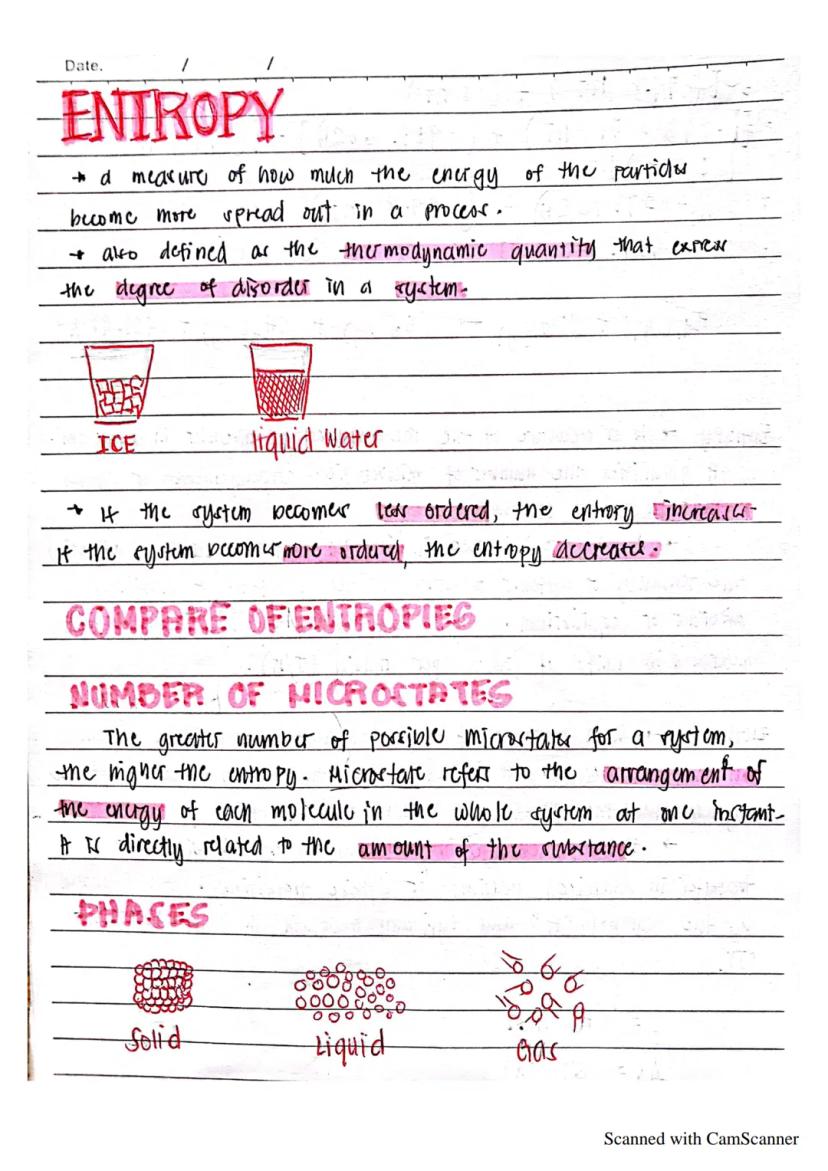 Date. / /
ENTROPY
→ a measure of how much the energy of the particles
become more spread out in a process.
→ also defined as the thermodynamic quantity that express
the degree of disorder in a system.
ICE liquid water
→ If the system becomes less ordered, the entropy increases.
If the system becomes more ordered, the entropy decreases.
COMPARE OF ENTROPIES
NUMBER OF MICROSTATES
The greater number of possible microstates for a system,
the higher the entropy. Microstate refers to the arrangement of
the energy of each molecule in the whole system at one instant.
It is directly related to the amount of the substance.
PHASES
Solid Liquid Gas
Scanned with CamScanner